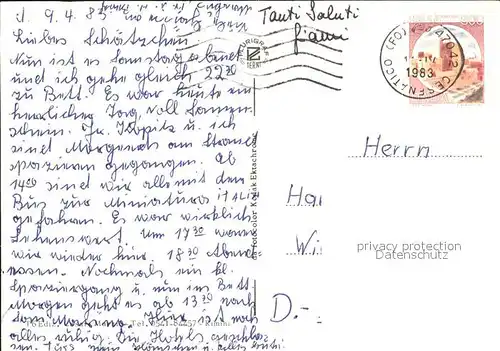 d. 9.4.83
Liebes Schätzchen!
Nun ist es Samstag abend
und ich gehe gleich 22 30
zu Bett. Es war heute ein
herrlicher Tag, voll Sonnen-
schein. Fr. u. ich
sind Morgens am Strand
spazieren gegangen. Ab
14 00 sind wir alle mit dem
Bus zur Miniatura Italia
gefahren. Es war wirklich
Sehenswert. Um 17 30 waren
wir wieder hier. 18 30 Abend
essen. Nochmals ein kl.
Spaziergang u. nun ins Bett.
Morgen geht es ab 13 30 nach
San Marino. Hier ist noch
alles ruhig. Die Hotels geschlos
sen.
Tanti Saluti
Gianni
47042 CESENATICO (FO)
1983
Fotocolor Kodak Ektachrome
Tel. 0541 Rimini
Herrn
Han
Wi
D.-
privacy protection
Datenschutz